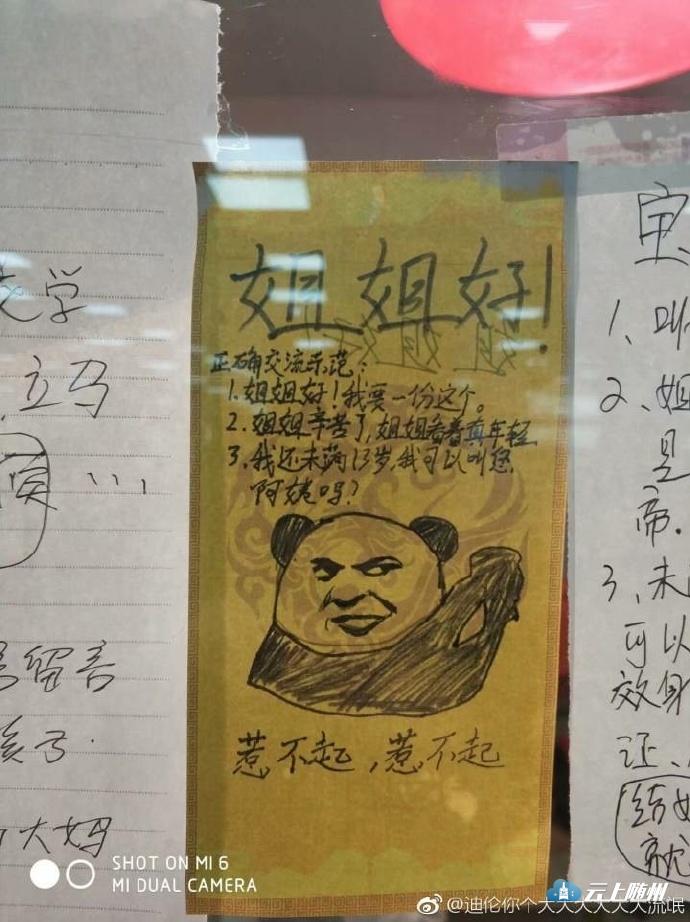 姐姐好!
正确交流示范:
1.姐姐好!我要一份这个。
2.姐姐辛苦了,姐姐看着真年轻
3.我还未满13岁,我可以叫您
阿姨吗?
惹不起,惹不起
学
立马
…
留言
孩子.
大妈
1、叫
2、姐
是
帝.
3、未
可以
效身
证、
就
SHOT ON MI 6
MI DUAL CAMERA
云上随州